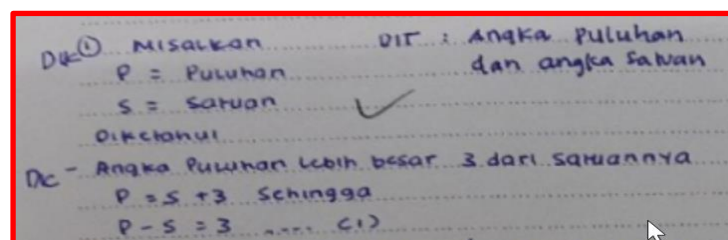 Dc ① Misalkan DIT : Angka Puluhan
P = Puluhan dan angka satuan
S = Satuan
Diketahui
Dc - Angka Puluhan lebih besar 3 dari satuannya
P = S + 3 Sehingga
P - S = 3 .... (1)